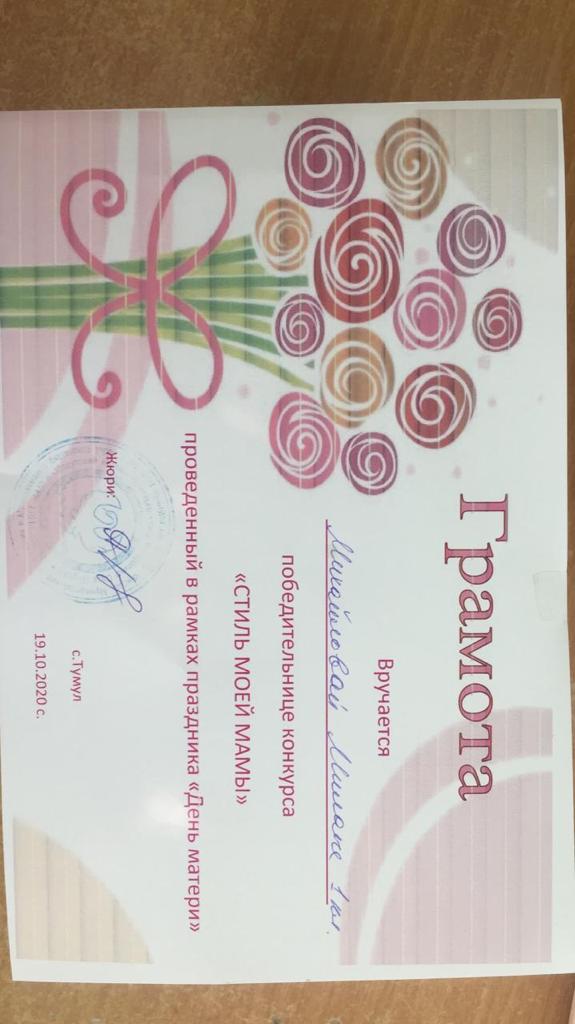 Грамота
Вручается
Михайловай Милане 1 кл.
победительнице конкурса
«СТИЛЬ МОЕЙ МАМЫ»
проведенный в рамках праздника «День матери»
Жюри:
с.Тумул
19.10.2020 с.